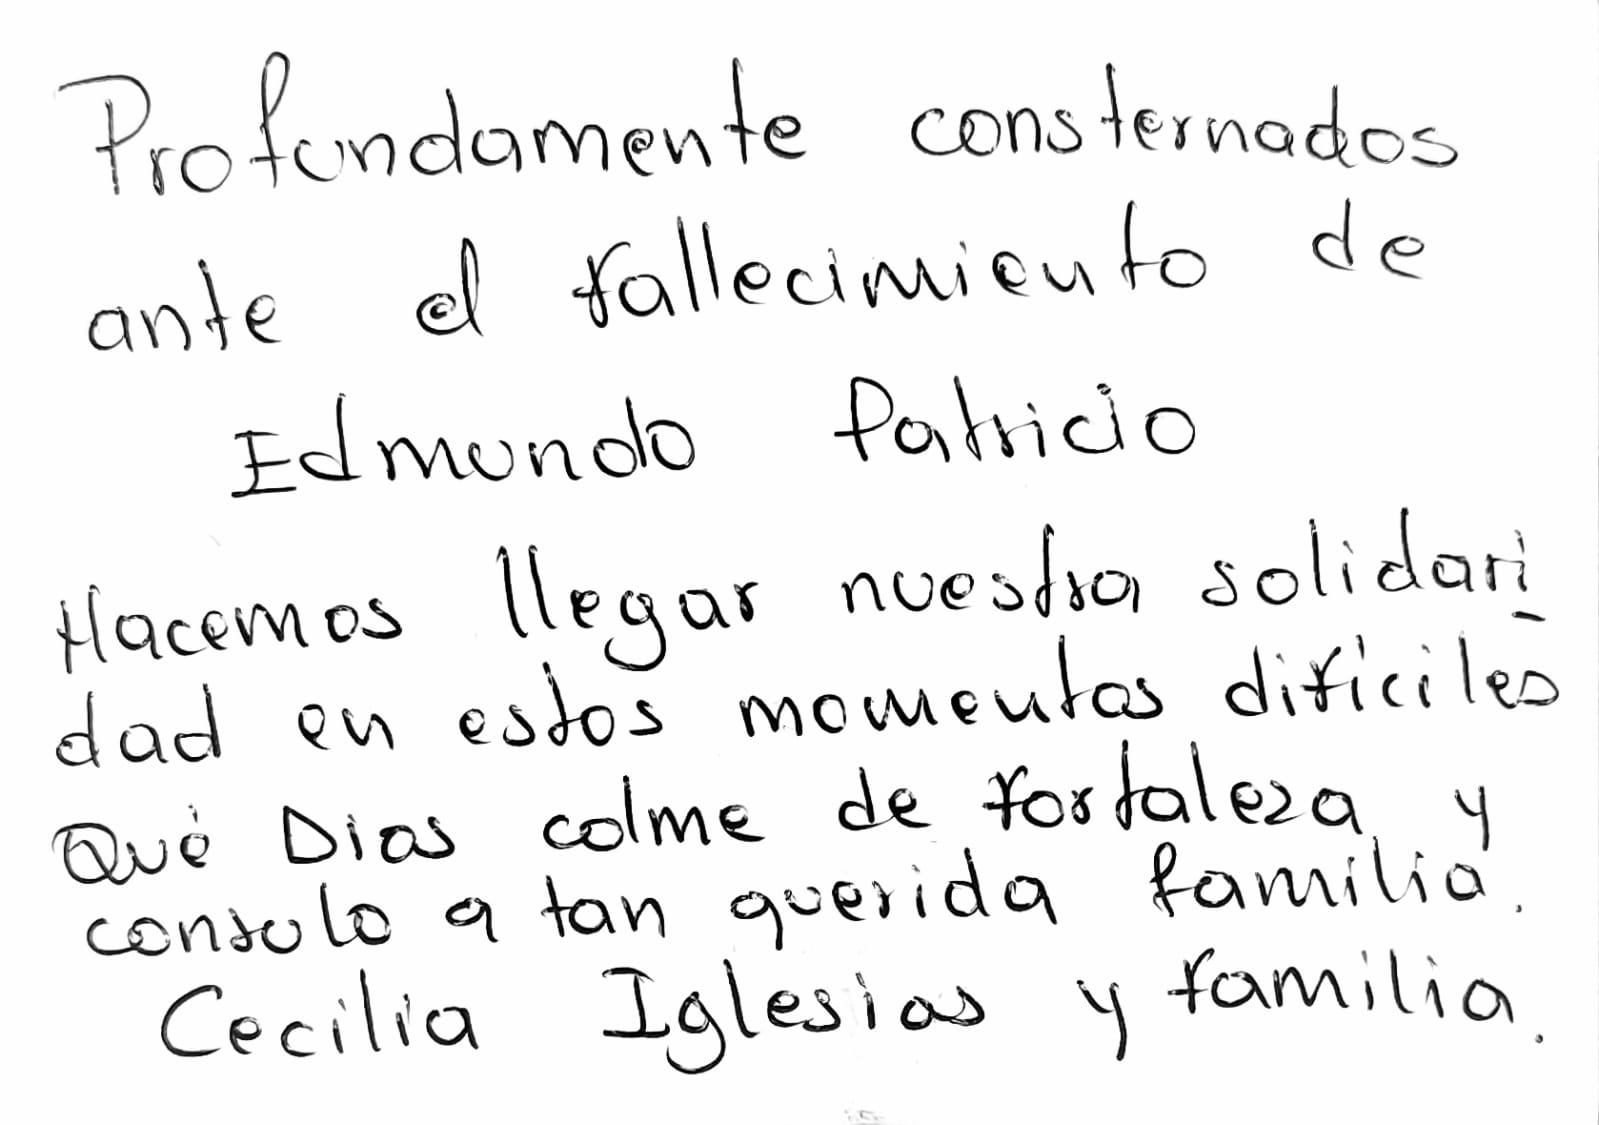 Profundamente consternados
ante el fallecimiento de
Edmundo Patricio
Hacemos llegar nuestra solidari-
dad en estos momentos difíciles
Qué Dios colme de fortaleza y
consulo a tan querida familia.
Cecilia Iglesias y familia.